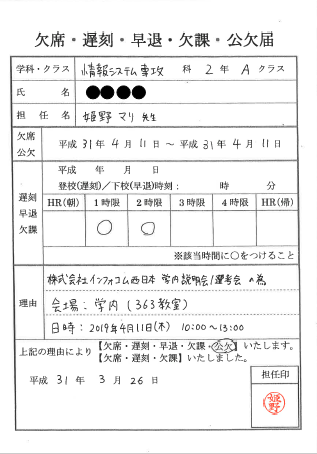 欠席・遅刻・早退・欠課・公欠届
学科・クラス 情報システム専攻 科 2年 A クラス
氏名
担任名 姫野 マリ 先生
欠席 公欠 平成 31年 4月 11日 ~ 平成 31年 4月 11日
遅刻 早退 欠課 平成 年 月 日
登校(遅刻)/下校(早退)時刻: 時 分
HR(朝) 1時限 2時限 3時限 4時限 HR(帰)
○ ○
※該当時間に○をつけること
理由 株式会社インフォコム西日本 学内説明会/選考会 の為
会場:学内(363教室)
日時:2019年4月11日(木) 10:00~13:00
上記の理由により【欠席・遅刻・早退・欠課・公欠】いたします。
【欠席・遅刻・欠課】いたしました。
平成 31年 3月 26日
担任印
姫野